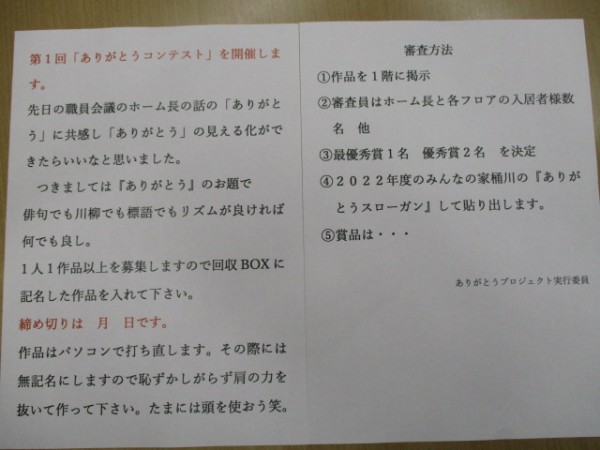 第１回「ありがとうコンテスト」を開催しま
す。
先日の職員会議のホーム長の話の「ありがと
う」に共感し「ありがとう」の見える化がで
きたらいいなと思いました。
つきましては『ありがとう』のお題で
俳句でも川柳でも標語でもリズムが良ければ
何でも良し。
１人１作品以上を募集しますので回収 BOX に
記名した作品を入れて下さい。
締め切りは　月　日です。
作品はパソコンで打ち直します。その際には
無記名にしますので恥ずかしがらず肩の力を
抜いて作って下さい。たまには頭を使おう笑。
審査方法
①作品を１階に掲示
②審査員はホーム長と各フロアの入居者様数
名　他
③最優秀賞１名　優秀賞２名　を決定
④２０２２年度のみんなの家桶川の『ありが
とうスローガン』して貼り出します。
⑤賞品は・・・
ありがとうプロジェクト実行委員